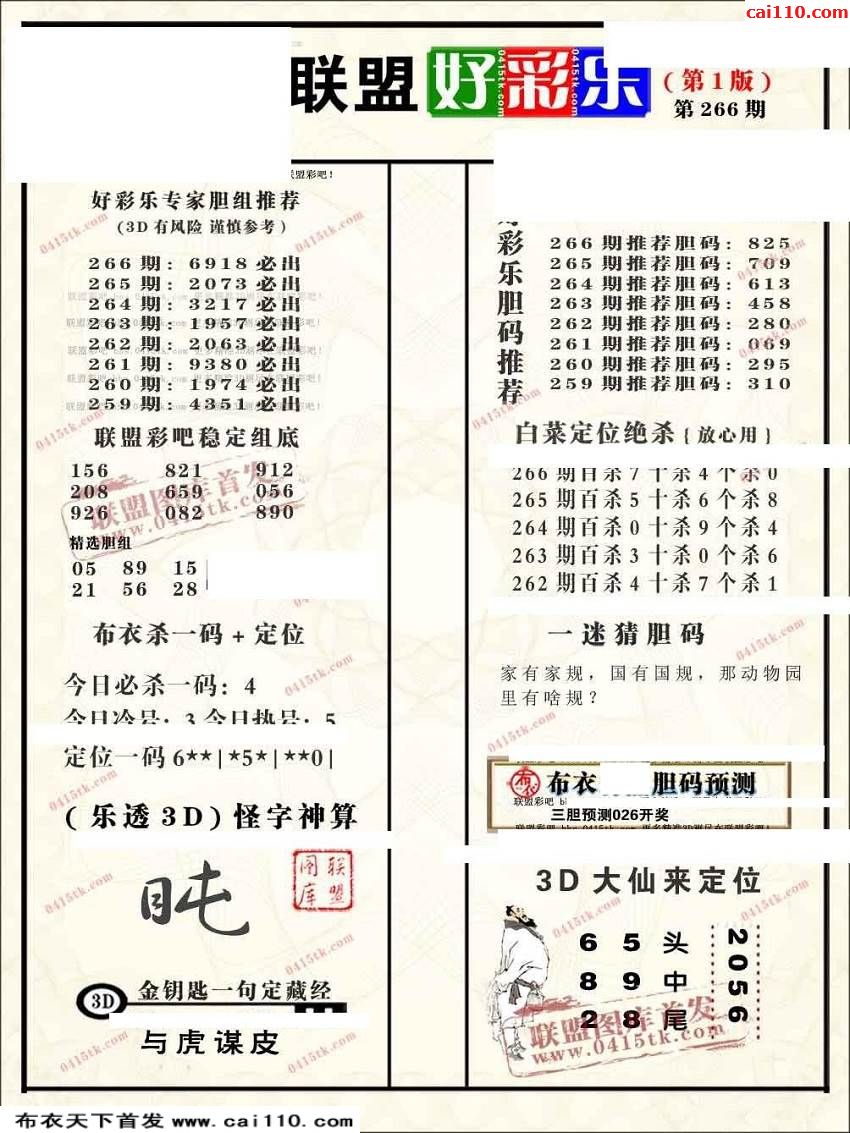 cai110.com
联盟 好彩乐
(第1版)
第266期
好彩乐专家胆组推荐
(3D有风险 谨慎参考)
266期: 6918必出
265期: 2073必出
264期: 3217必出
263期: 1957必出
262期: 2063必出
261期: 9380必出
260期: 1974必出
259期: 4351必出
联盟彩吧稳定组底
156 821 912
208 659 056
926 082 890
精选胆组
05 89 15
21 56 28
布衣杀一码+定位
今日必杀一码: 4
今日冷号: 3 今日热号: 5
定位一码 6**|*5*|**0|
(乐透3D)怪字神算
联盟图库
3D 金钥匙一句定藏经
与虎谋皮
彩乐胆码推荐
266期推荐胆码: 825
265期推荐胆码: 709
264期推荐胆码: 613
263期推荐胆码: 458
262期推荐胆码: 280
261期推荐胆码: 069
260期推荐胆码: 295
259期推荐胆码: 310
白菜定位绝杀{放心用}
266期百杀7十杀4个杀0
265期百杀5十杀6个杀8
264期百杀0十杀9个杀4
263期百杀3十杀0个杀6
262期百杀4十杀7个杀1
一迷猜胆码
家有家规，国有国规，那动物园
里有啥规？
布衣 布衣 胆码预测
联盟彩吧
三胆预测026开奖
3D大仙来定位
6 5 头
8 9 中
2 8 尾
2056
联盟图库首发
www.0415tk.com
布衣天下首发 www.cai110.com